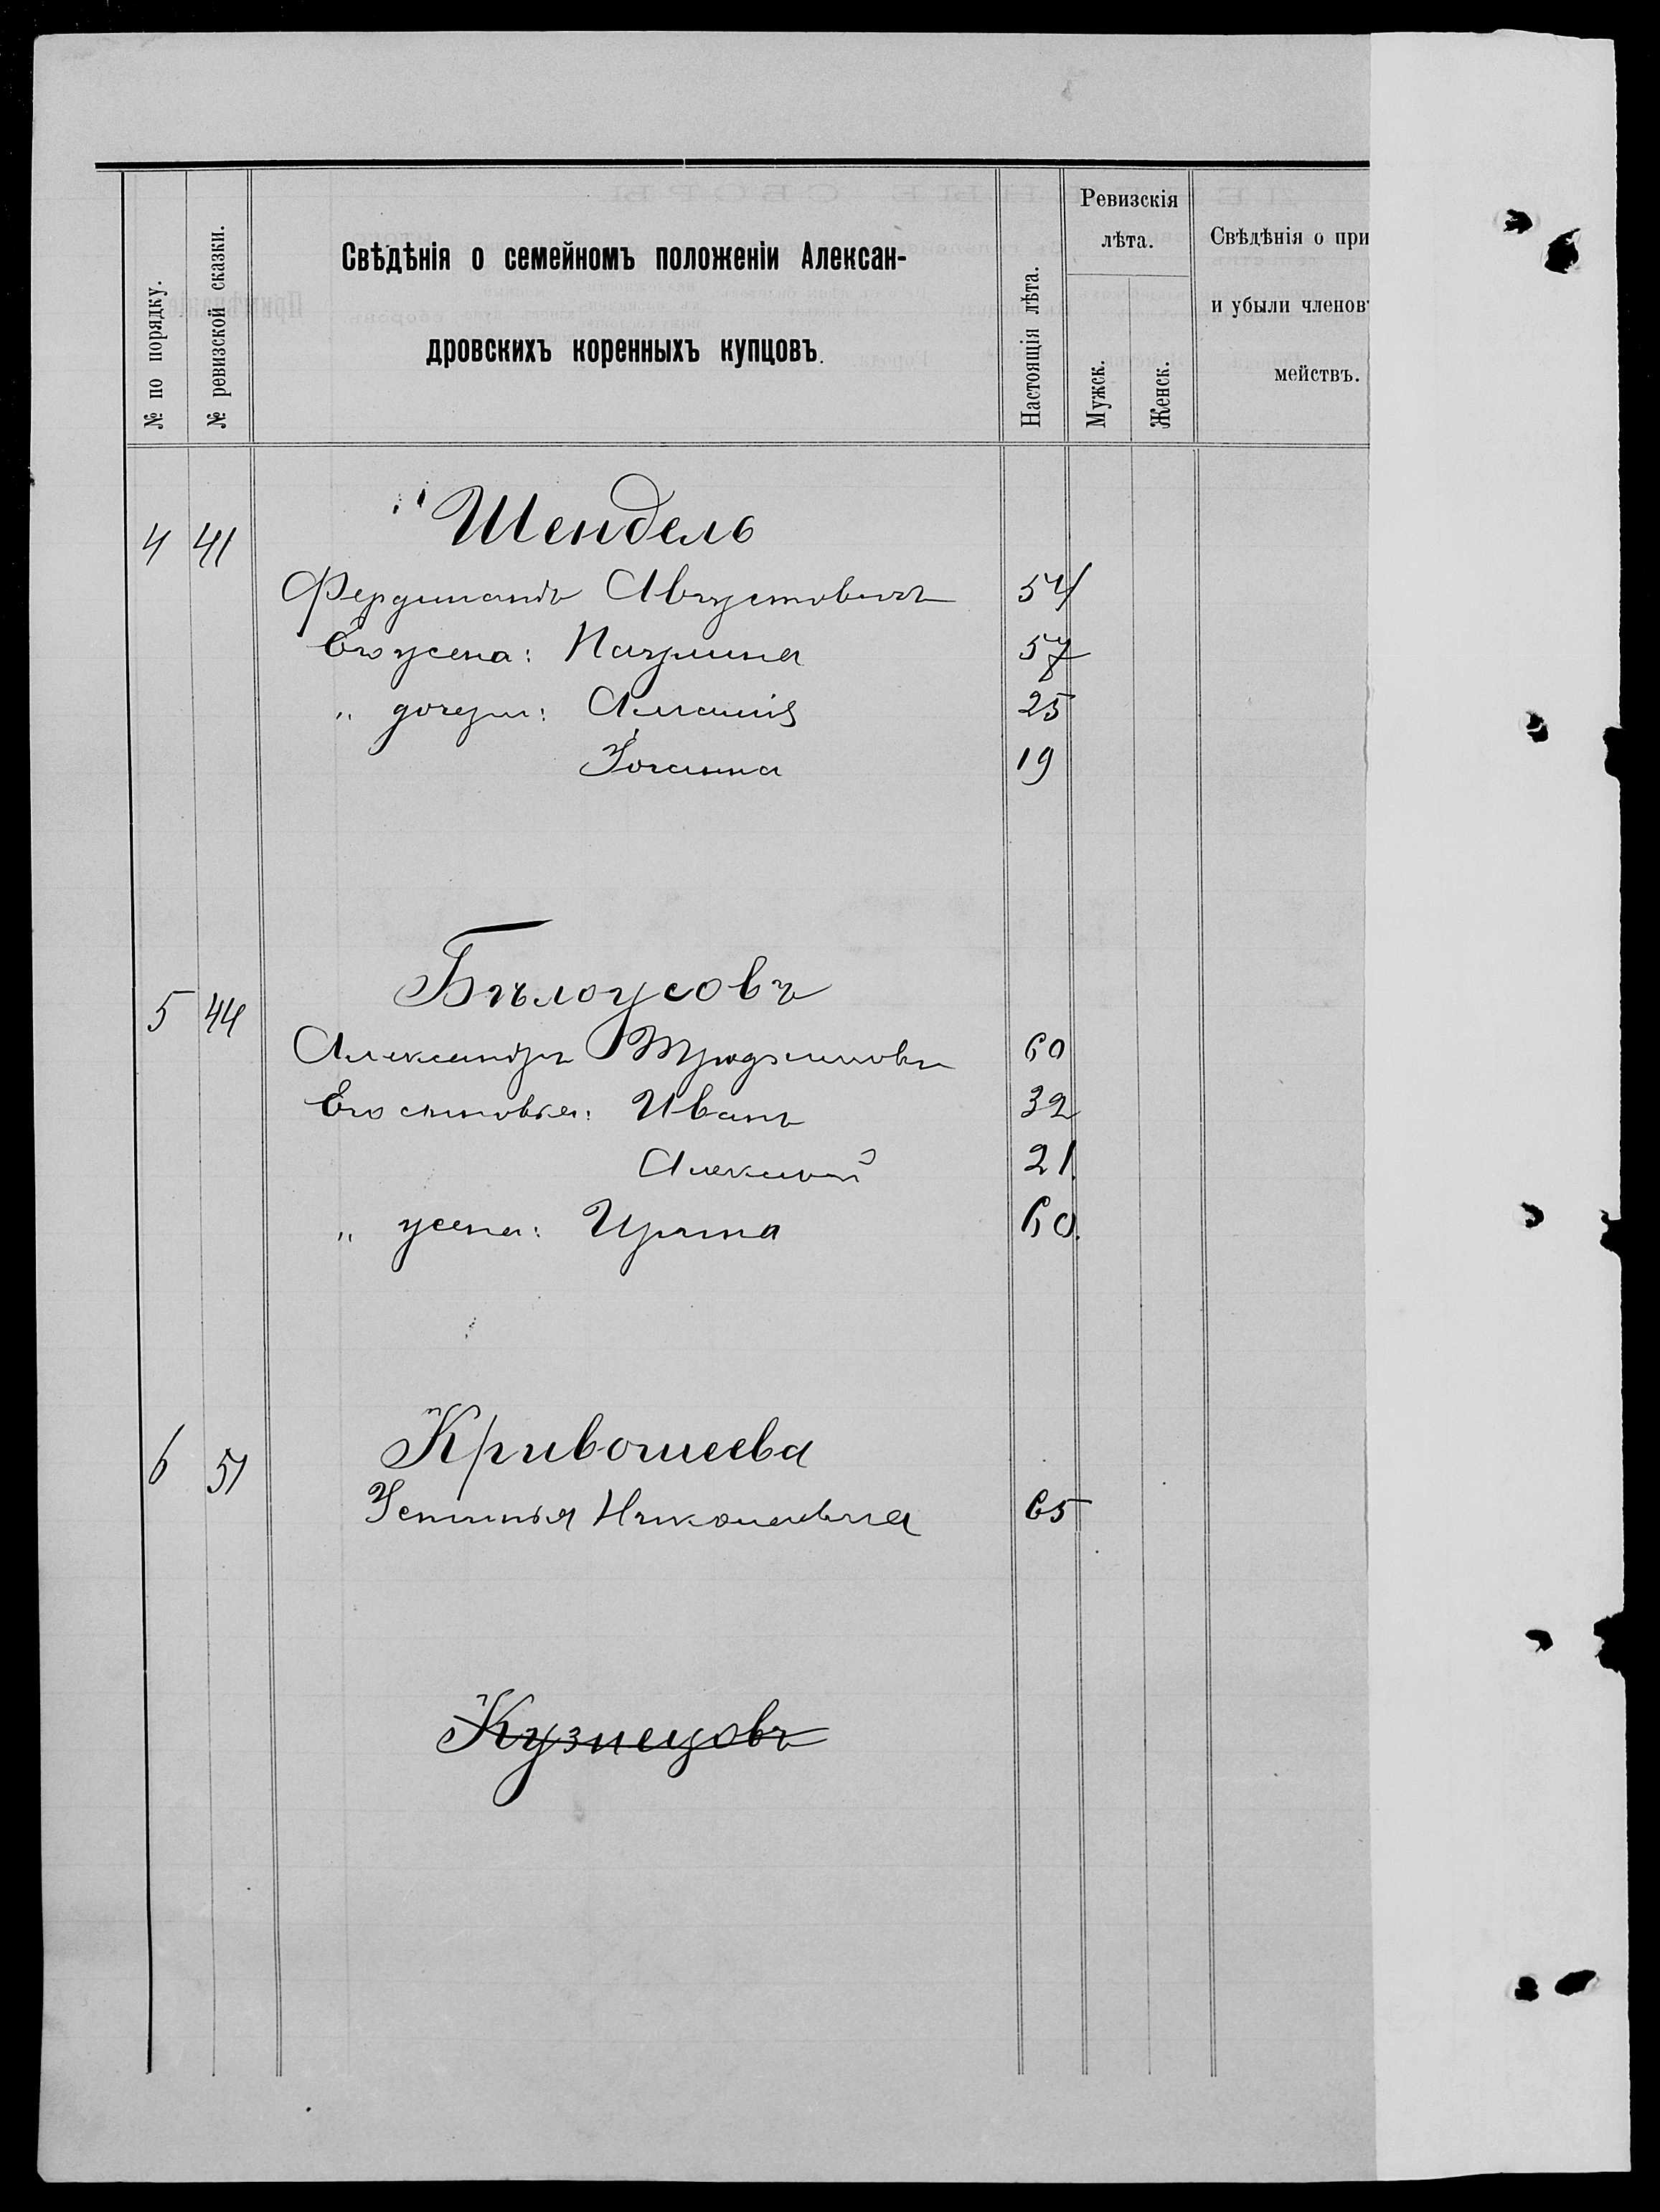 № по порядку.
№ ревизской сказки.
Свѣдѣнія о семейномъ положеніи Алексан-
дровскихъ коренныхъ купцовъ.
Настоящія лѣта.
Ревизскія
лѣта.
Мужск.
Женск.
Свѣдѣнія о при
и убыли членовъ
мействъ.
4 41 Шендель
Фердинандъ Августовичъ 54
Его жена: Паулина 57
" дочери: Амалія 25
Іоганна 19
5 44 Бѣлоусовъ
Александръ 60
Его сыновья: Иванъ 32
Алексѣй 21.
" жена: Ирина 60.
6 51 Кривошеева
Устинья Николаевна 65
Кузнецовъ